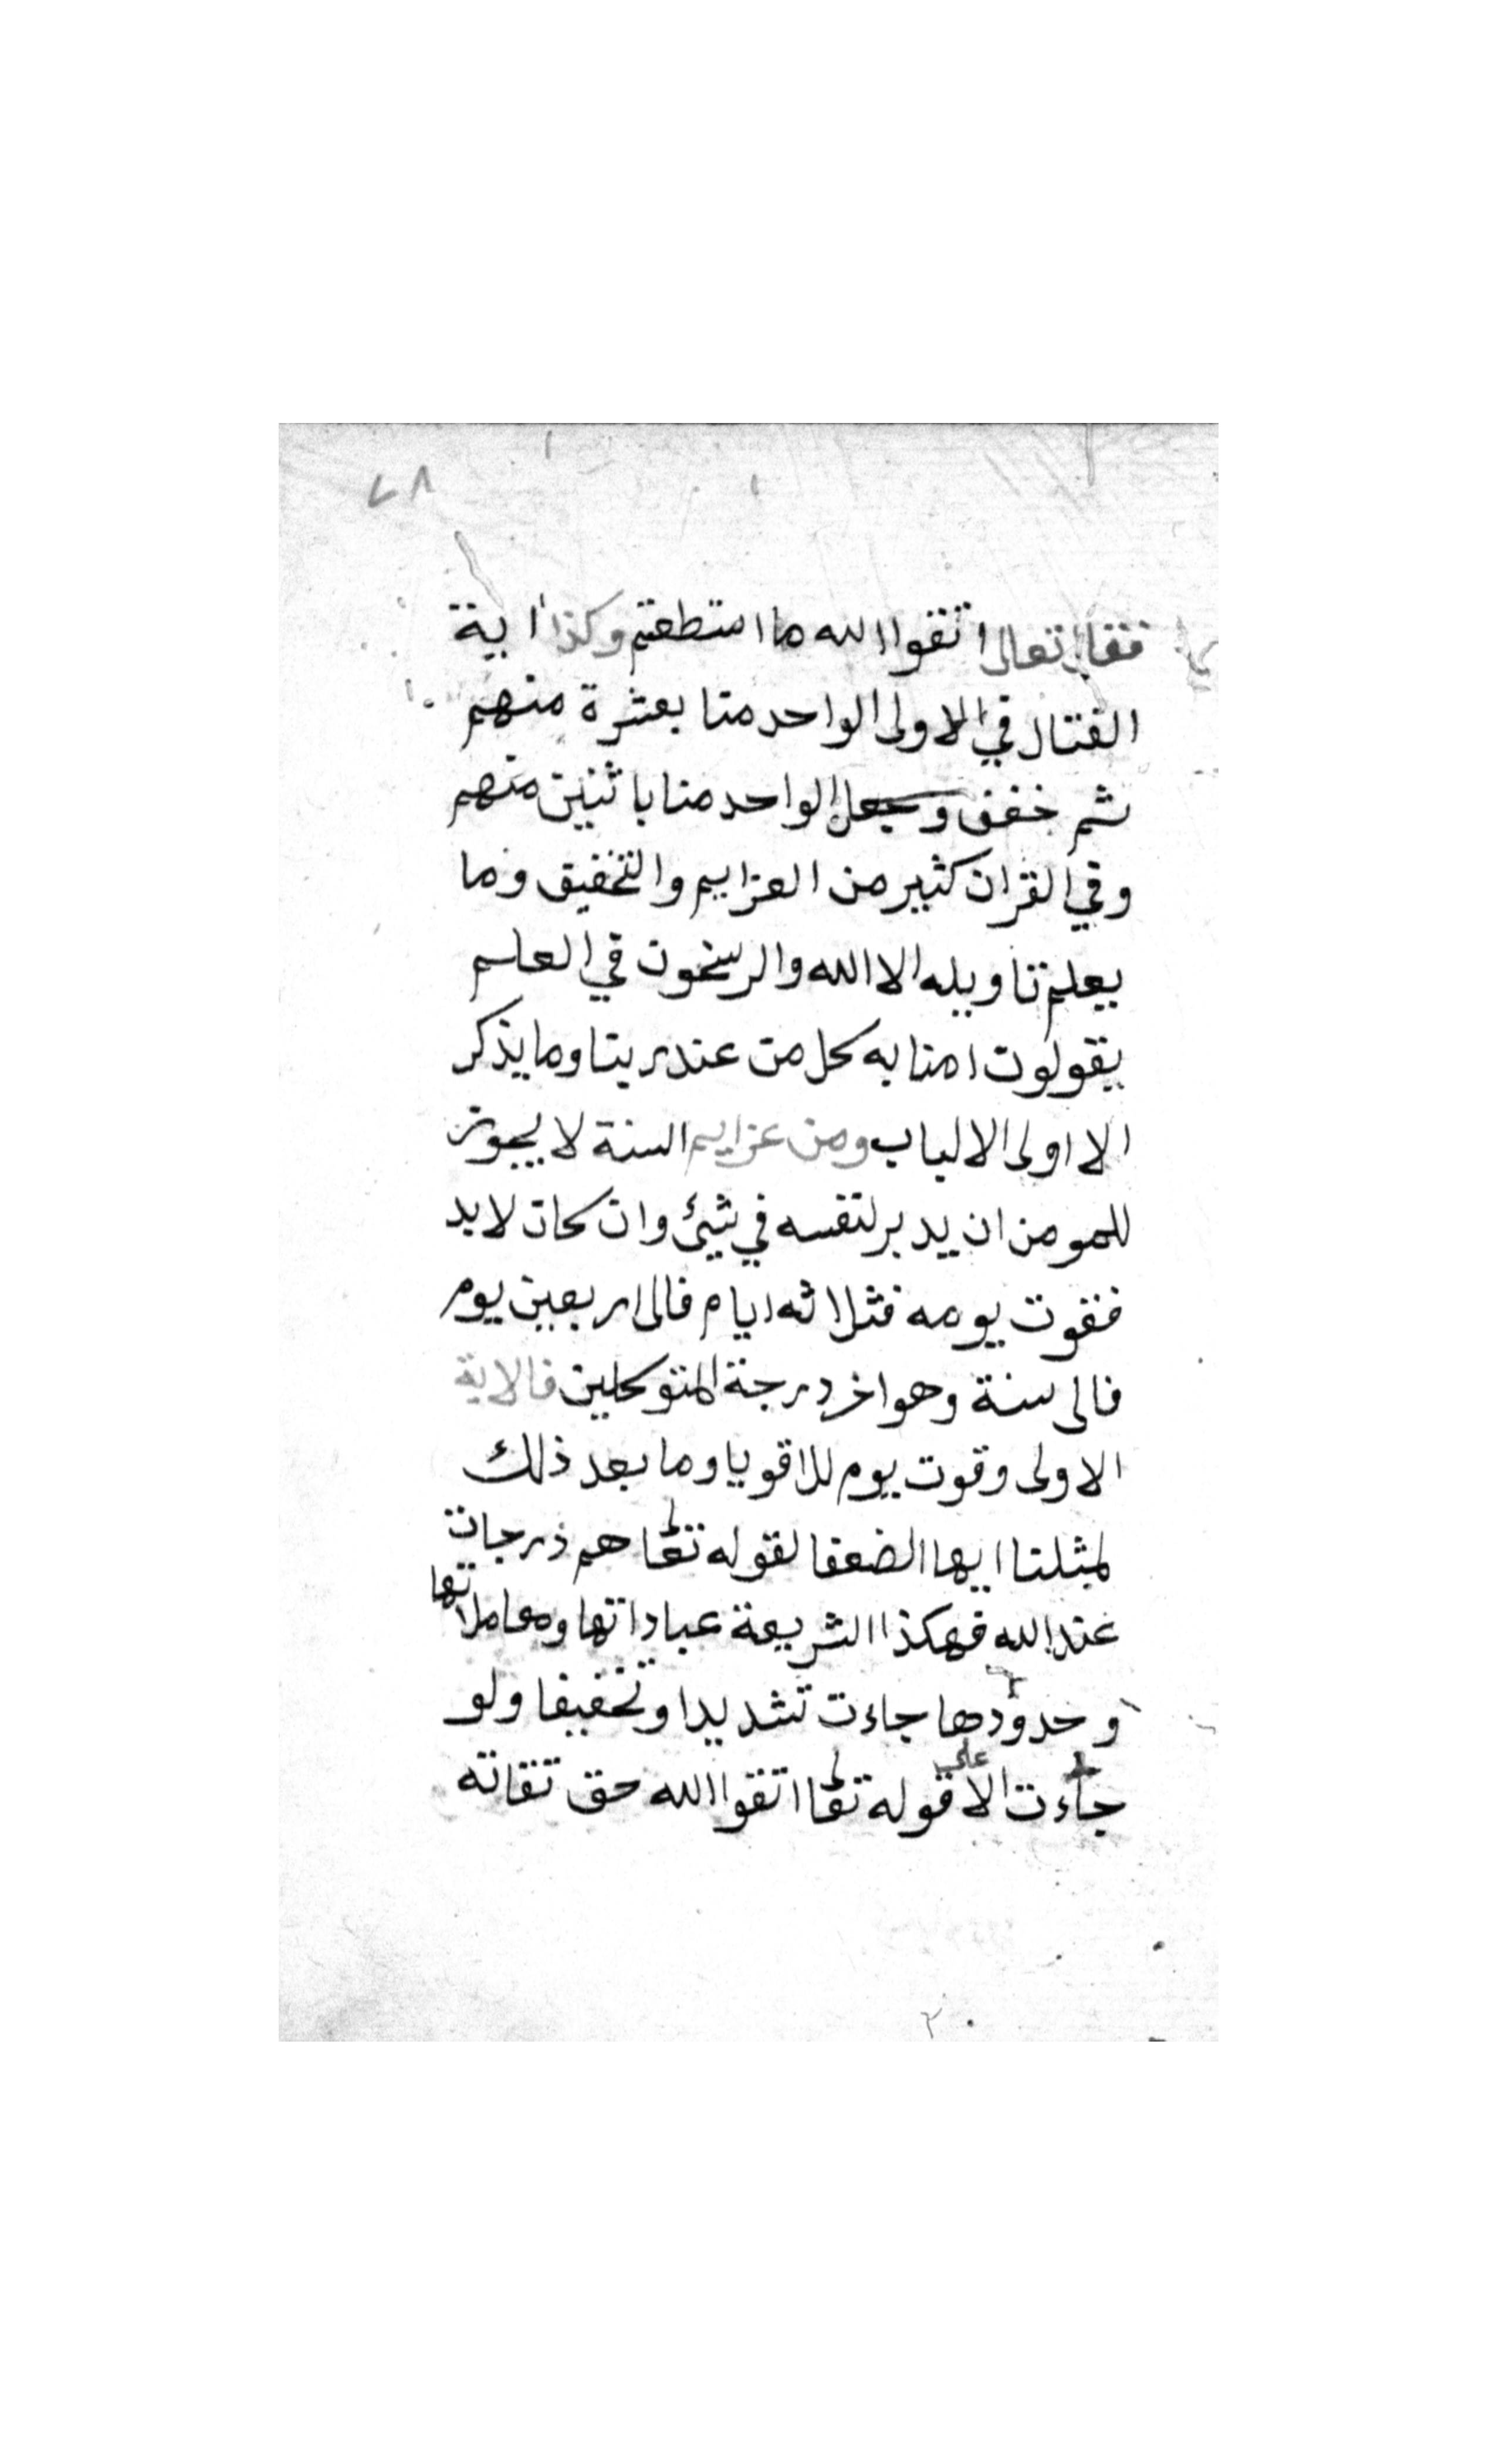 ٧٨
فقال تعالى اتقوا الله ما استطعتم وكذا اية
القتال في الاولى الواحد منا بعشرة منهم
ثم خفف وجعل الواحد منا باثنين منهم
وفي القران كثير من العزايم والتخفيف وما
يعلم تاويله الا الله والرسخون في العلم
يقولون امنا به كل من عند ربنا وما يذكر
الا اولى الالباب ومن عزايم السنة لا يجوز
للمومن ان يدبر لنفسه في شيئ وان كان لابد
فقوت يومه فثلاثه ايام فالى اربعين يوم
فالى سنة وهو اخر درجة المتوكلين فالاية
الاولى وقوت يوم للاقويا وما بعد ذلك
لمثلنا ايها الضعفا لقوله تعالى هم درجات
عند الله فهكذا الشريعة عباداتها ومعاملاتها
وحدودها جاءت تشديدا وتخفيفا ولو
جاءت الا على قوله تعالى اتقوا الله حق تقاته